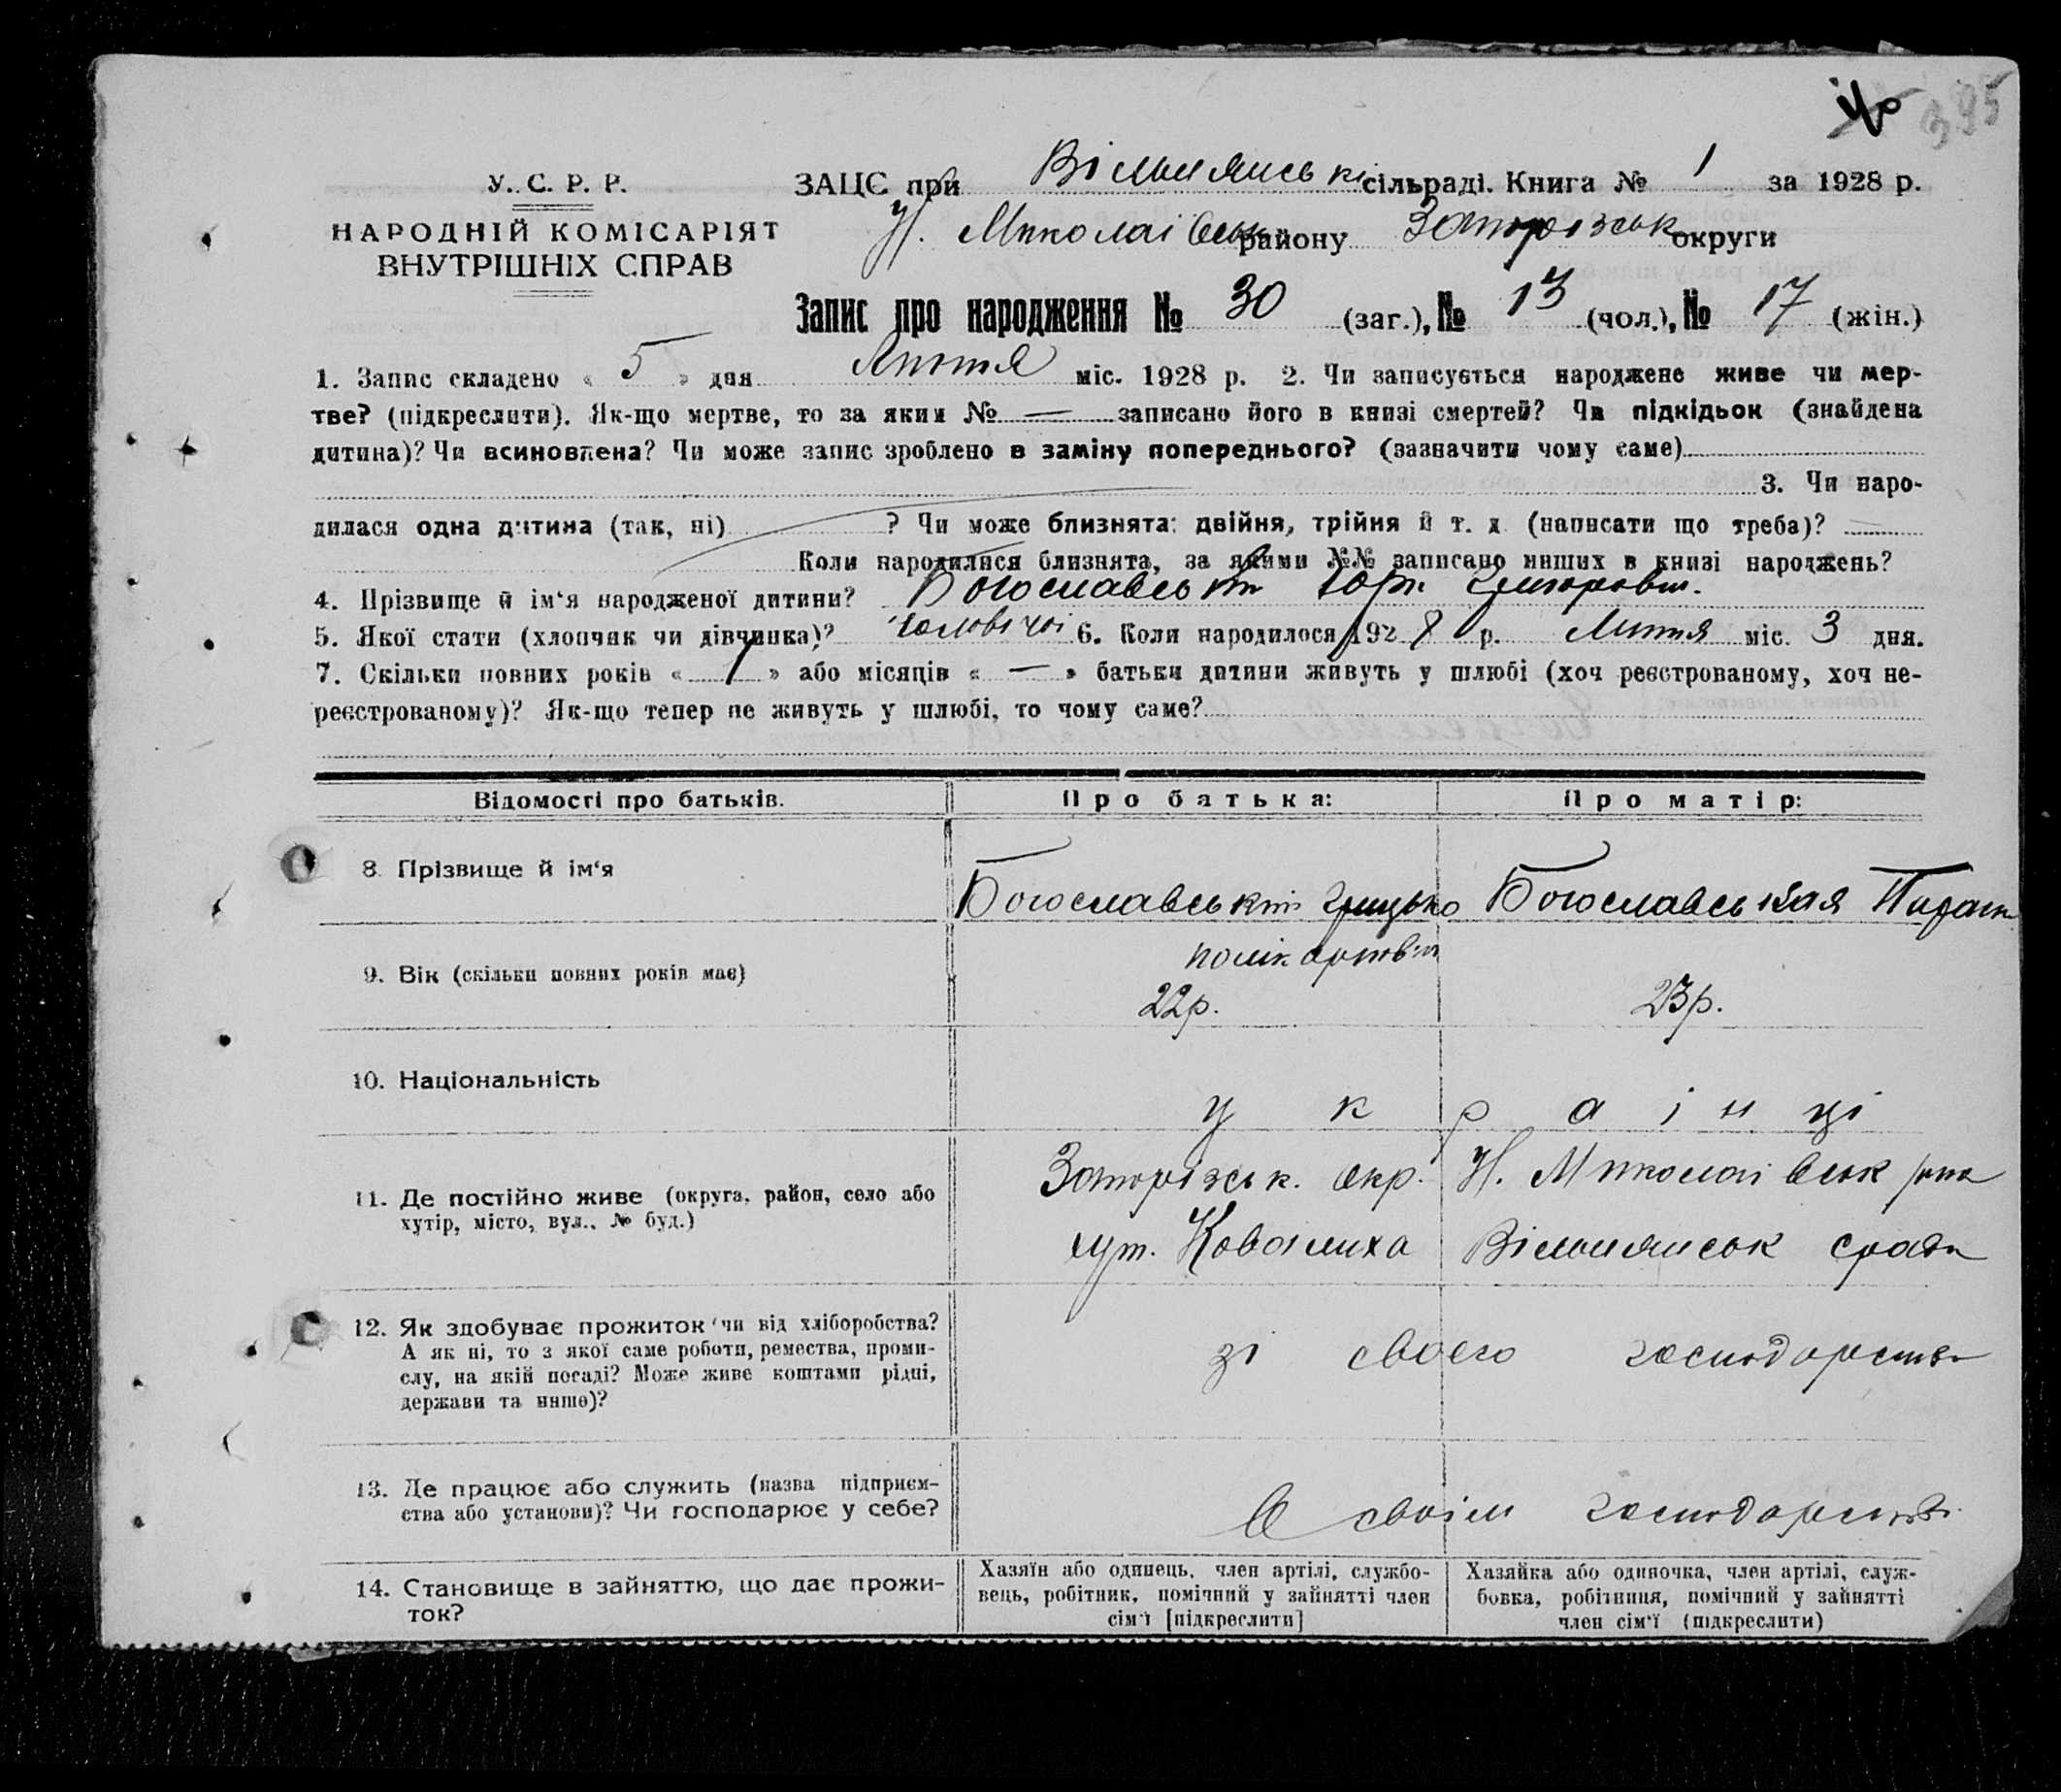 395
У. С. Р. Р.
НАРОДНІЙ КОМІСАРІЯТ
ВНУТРІШНІХ СПРАВ
ЗАЦС при Вільнянські сільраді. Книга № 1 за 1928 р.
Н. Миколаівськ району Запорізськ округи
Запис про народження № 30 (заг.), № 13 (чол.), № 17 (жін.)
1. Запис складено « 5 » дня Липня міс. 1928 р. 2. Чи записується народжене живе чи мер-
тве? (підкреслити). Як-що мертве, то за яким № — записано його в книзі смертей? Чи підкідьок (знайдена
дитина)? Чи всиновлена? Чи може запис зроблено в заміну попереднього? (зазначити чому саме)
3. Чи наро-
дилася одна дитина (так, ні) ? Чи може близнята: двійня, трійня й т. д. (написати що треба)?
Коли народилися близнята, за якими №№ записано инших в книзі народжень?
4. Прізвище й ім‘я народженої дитини? Богославський Юрк Григорович.
5. Якої стати (хлопчик чи дівчинка)? чоловічої 6. Коли народилося 1928 р. Липня міс. 3 дня.
7. Скільки повних років « 1 » або місяців « — » батьки дитини живуть у шлюбі (хоч реєстрованому, хоч не-
реєстрованому)? Як-що тепер не живуть у шлюбі, то чому саме?
Відомості про батьків. Про батька: Про матір:
8. Прізвище й ім‘я Богославський Грицько Богославськая Параск
Полікарпович
9. Вік (скільки повних років має) 22р. 23р.
10. Національність українці
11. Де постійно живе (округа, район, село або Запорізськ. окр. Н. Миколаівськ рна
хутір, місто, вул., № буд.) хут. Ковалиха Вільнянськ сради
12. Як здобуває прожиток чи від хліборобства? зі свого господарства
А як ні, то з якої саме роботи, ремества, проми-
слу, на якій посаді? Може живе коштами рідні,
держави та инше)?
13. Де працює або служить (назва підприєм- в своім господарстві
ства або установи)? Чи господарює у себе?
14. Становище в зайняттю, що дає прожи-
ток?
Хазяїн або одинець, член артілі, службо-
вець, робітник, помічний у зайнятті член
сім‘ї [підкреслити]
Хазяйка або одиночка, член артілі, служ-
бовка, робітниця, помічний у зайнятті
член сім‘ї (підкреслити)